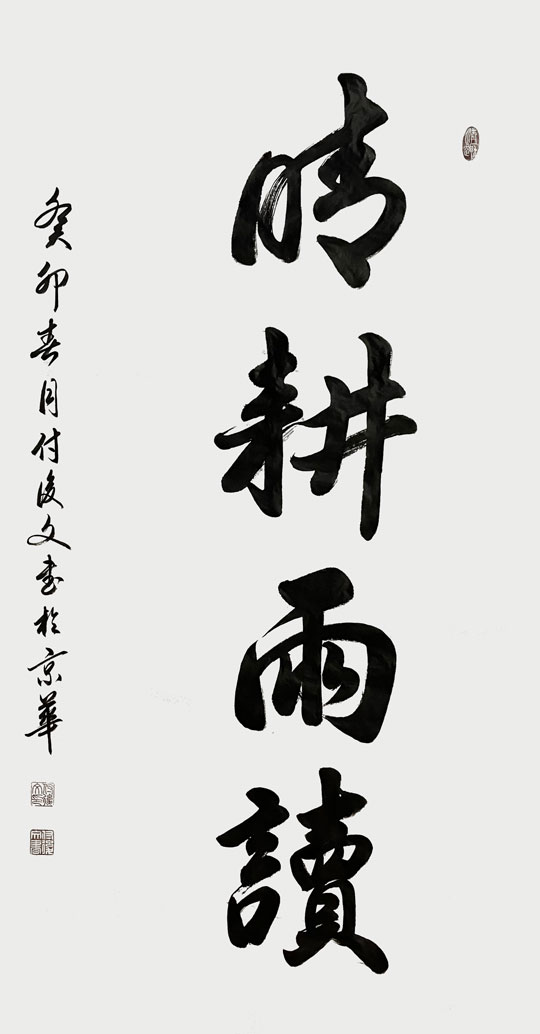 晴耕雨讀
癸卯春月付後文書於京華